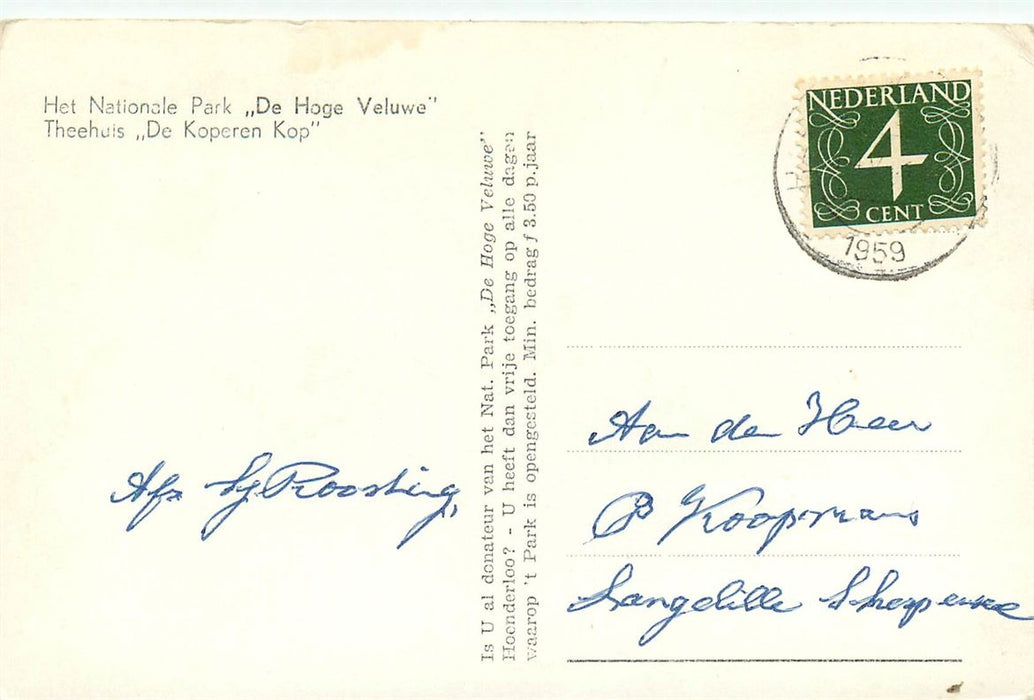 Het Nationale Park „De Hoge Veluwe"
Theehuis „De Koperen Kop"
Afz Roosting,
Is U al donateur van het Nat. Park „De Hoge Veluwe"
Hoenderloo? - U heeft dan vrije toegang op alle dagen
waarop 't Park is opengesteld. Min. bedrag f 3.50 p. jaar
NEDERLAND
4
CENT
1959
Aan de Heer
P Koopmans
Langelille